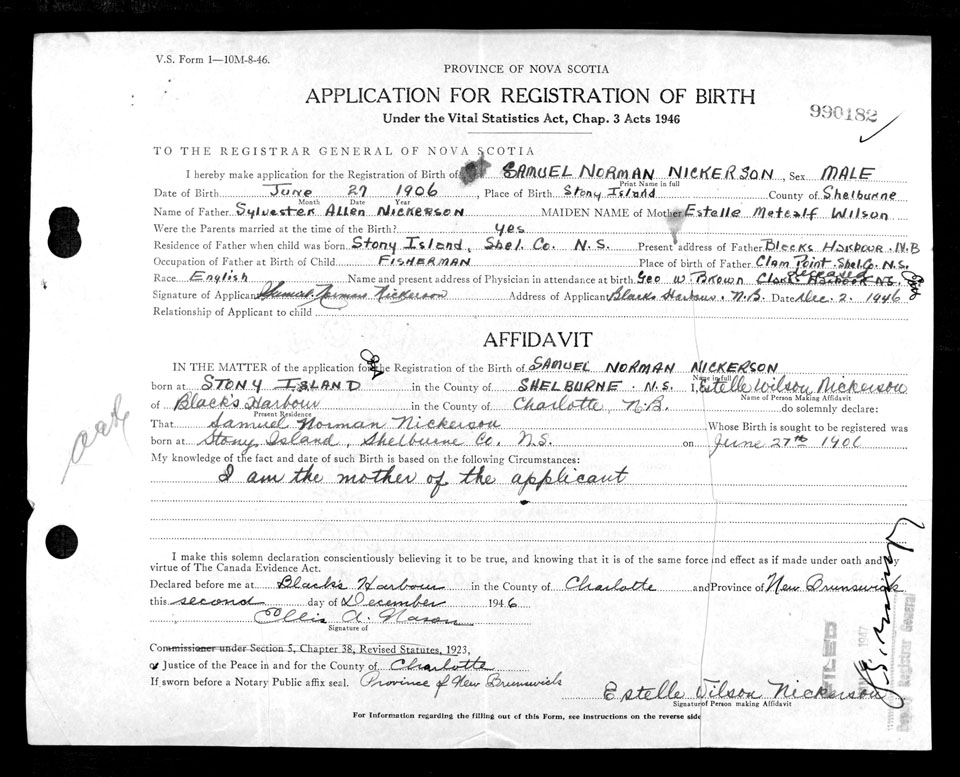 V.S. Form 1—10M-8-46.
PROVINCE OF NOVA SCOTIA
APPLICATION FOR REGISTRATION OF BIRTH
990182
Under the Vital Statistics Act, Chap. 3 Acts 1946
TO THE REGISTRAR GENERAL OF NOVA SCOTIA
I hereby make application for the Registration of Birth of SAMUEL NORMAN NICKERSON, Sex MALE
Print Name in full
Date of Birth June 27 1906, Place of Birth Stony Island County of Shelburne
Month Date Year
Name of Father Sylvester Allen Nickerson MAIDEN NAME of Mother Estelle Metcalf Wilson
Were the Parents married at the time of the Birth? yes
Residence of Father when child was born Stony Island, Shel. Co. N.S. Present address of Father Blacks Harbour. N.B
Occupation of Father at Birth of Child FISHERMAN Place of birth of Father Clam Point. Shel. Co. N.S.
deceased
Race English Name and present address of Physician in attendance at birth Geo W Brown Clark's Harbour N.S.
Signature of Applicant Samuel Norman Nickerson Address of Applicant Blacks Harbour. N.B. Date Dec. 2. 1946
Relationship of Applicant to child
AFFIDAVIT
IN THE MATTER of the application for the Registration of the Birth of SAMUEL NORMAN NICKERSON
Name in full
born at STONY ISLAND in the County of SHELBURNE. N.S. I, Estelle Wilson Nickerson
Name of Person Making Affidavit
of Black's Harbour in the County of Charlotte, N.B. do solemnly declare:
Present Residence
That Samuel Norman Nickerson Whose Birth is sought to be registered was
born at Stony Island, Shelburne Co. N.S. on June 27th 1906
My knowledge of the fact and date of such Birth is based on the following Circumstances:
I am the mother of the applicant
I make this solemn declaration conscientiously believing it to be true, and knowing that it is of the same force and effect as if made under oath and by
virtue of The Canada Evidence Act.
Declared before me at Black's Harbour in the County of Charlotte and Province of New Brunswick
this second day of December 1946
Ellis A. Nason
Signature of
Commissioner under Section 5, Chapter 38, Revised Statutes, 1923,
or Justice of the Peace in and for the County of Charlotte
If sworn before a Notary Public affix seal. Province of New Brunswick
Estelle Wilson Nickerson
Signature of Person making Affidavit
For Information regarding the filling out of this Form, see instructions on the reverse side
FILED
1947
Deputy Registrar General